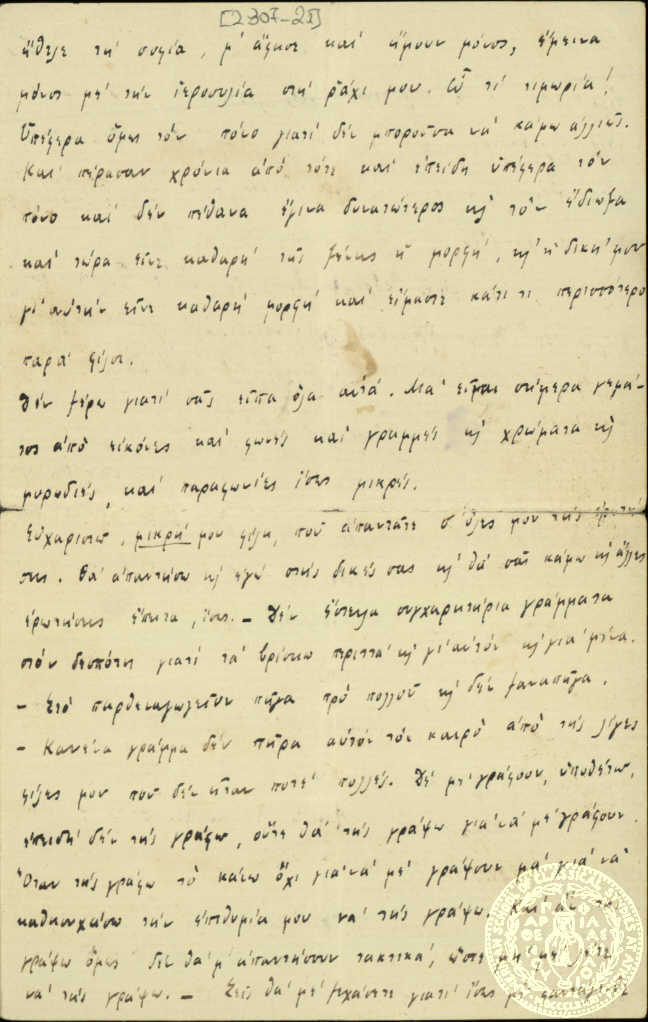 [2307-25]
ἤθελε τή σοφία, μ' ἄφησε καί ἤμουν μόνος, ἔμεινα
μόνος μέ τήν ἱεροσυλία στή ράχι μου. Ὤ τί τιμωρία!
Ὑπέφερα ὅμως τόν πόνο γιατί δέν μποροῦσα νά κάμω ἀλλιῶς.
Καί πέρασαν χρόνια ἀπό τότε καί ἐπειδή ὑπέφερα τόν
πόνο καί δέν πέθανα ἔγινα δυνατώτερος κι τόν ἔδιωξα
καί τώρα εἶνε καθαρή τῆς ἡ μορφή, κι' ἡ δική μου
γι' αὐτήν εἶνε καθαρή μορφή καί εἴμαστε κάτι τι περισσότερο
παρά φίλοι.
Δέν ξέρω γιατί σᾶς εἶπα ὅλα αὐτά. Μά εἶμαι σήμερα γεμᾶ-
τος ἀπό εἰκόνες καί φωνές καί γραμμές κι χρώματα κι
μυρωδιές, καί παραφωνίες ἴσως μικρές.
Εὐχαριστῶ, μικρή μου φίλη, πού ἀπαντᾶτε σ' ὅλες μου τίς ἐρωτή-
σεις. Θά ἀπαντήσω κι ἐγώ στίς δικές σας κι θά σᾶς κάμω κι ἄλλες
ἐρωτήσεις ἔπειτα, ἴσως. – Δέν ἔστειλα συγχαρητήρια γράμματα
στόν δεσπότη γιατί τά βρίσκω περιττά κι γι' αὐτόν κι για μένα.
– Στό παρθεναγωγεῖον πῆγα πρό πολλοῦ κι δέν ξαναπῆγα.
– Κανένα γράμμα δέν πῆρα αὐτόν τόν καιρό ἀπό τίς λίγες
φίλες μου πού δέν ἦταν ποτέ πολλές. Δέ μέ γράφουν, ὑποθέτω,
ἐπειδή δέν τίς γράφω, οὔτε θά τίς γράψω γιά νά μέ γράφουν.
Ὅταν τίς γράφω τό κάνω ὄχι γιά νά μέ γράψουν μά γιά νά
καθησυχάσω τήν ἐπιθυμία μου νά τίς γράψω. Καί ἄν τίς
γράψω ὅμως δέ θά μ' ἀπαντήσουν τακτικά, ὥστε μή μέ
νά τίς γράψω. – Σεῖς θά μέ γιατί ἴσως μέ